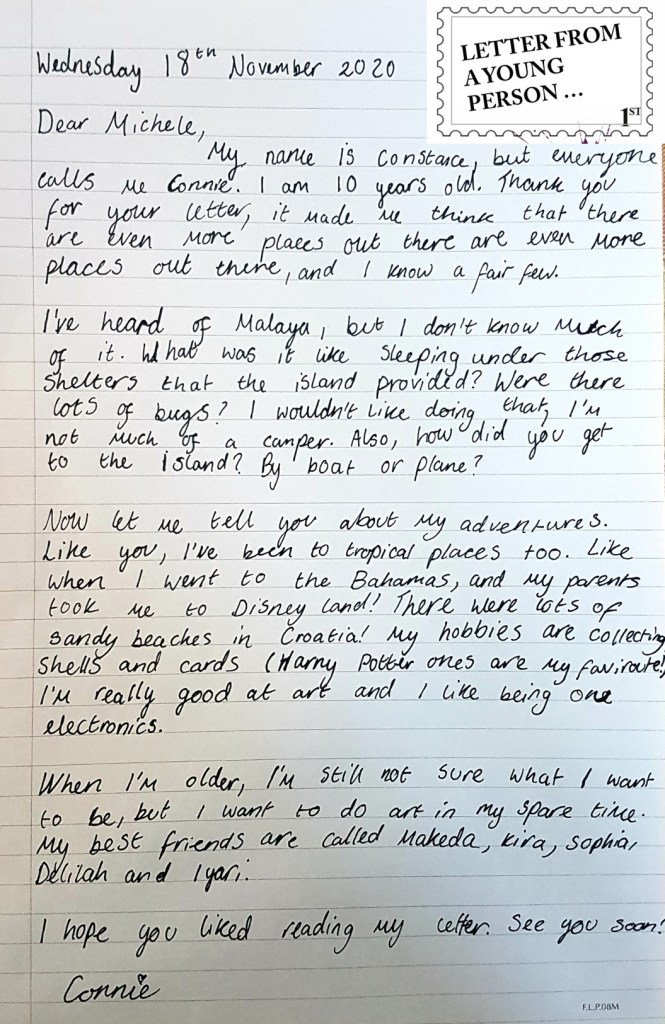 LETTER FROM
A YOUNG
PERSON ...
1ST
Wednesday 18th November 2020
Dear Michele,
My name is Constance, but everyone
calls me Connie. I am 10 years old. Thank you
for your letter, it made me think that there
are even more places out there are even more
places out there, and I know a fair few.
I've heard of Malaya, but I don't know much
of it. What was it like sleeping under those
shelters that the island provided? Were there
lots of bugs? I wouldn't like doing that, I'm
not much of a camper. Also, how did you get
to the island? By boat or plane?
Now let me tell you about my adventures.
Like you, I've been to tropical places too. Like
when I went to the Bahamas, and my parents
took me to Disney land! There were lots of
sandy beaches in Croatia! My hobbies are collecting
shells and cards (Harry Potter ones are my faviroute!)
I'm really good at art and I like being one
electronics.
When I'm older, I'm still not sure what I want
to be, but I want to do art in my spare time.
My best friends are called Makeda, Kira, Sophia,
Delilah and Iyari.
I hope you liked reading my letter. See you soon!
Connie
F.L.P.08M